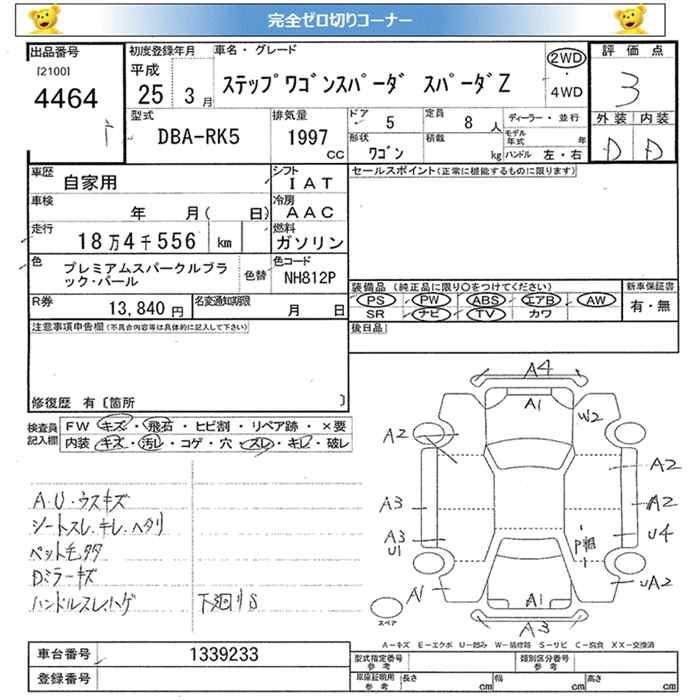 完全ゼロ切りコーナー
出品番号
[2100]
4464
初度登録年月
平成
25 3月
車名・グレード
ステップワゴンスパーダ スパーダZ
2WD
・
4WD
評価点
3
外装 内装
D D
型式
DBA-RK5
排気量
1997
CC
ドア
5
定員
8人
形状
ワゴン
積載
kg
ディーラー・並行
モデル年式 年
ハンドル 左・右
車歴
自家用
シフト
IAT
車検
年 月( 日)
冷房
AAC
走行
18万4千556 km
燃料
ガソリン
色
プレミアムスパークルブラック・パール
色替
色コード
NH812P
R券
13,840円
名変通知期限
月 日
セールスポイント(正常に機能するものに限ります)
装備品 (純正品に限り〇をつけてください)
PS PW ABS エアB AW
SR ナビ TV カワ
新車保証書
有・無
後日品
注意事項申告欄(不具合内容等は具体的に記入して下さい)
修復歴 有〔箇所 〕
検査員記入欄
FW キズ・飛石・ヒビ割・リペア跡・×要
内装 キズ・汚レ・コゲ・穴・スレ・キレ・破レ
A・U・ウスキズ
シートスレ、キレ、ヘタリ
ペット毛多タ
Dミラーキズ
ハンドルスレ、ハゲ
下廻りS
A4
A1
W2
A2
A2
A3
A2
A3
U1
U4
P
A1
UA2
A1
A3
スペア
A－キズ E－エクボ U－凹み W－補修跡 S－サビ C－腐食 XX－交換済
車台番号
1339233
登録番号
型式指定番号
参考
類別区分番号
参考
車庫証明用
参考
長さ cm
幅 cm
高さ cm